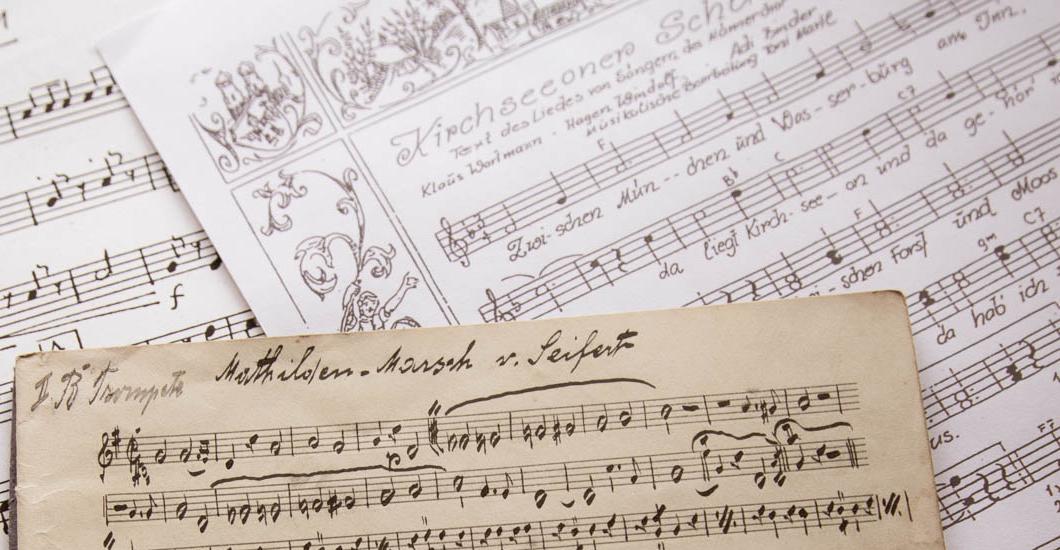 Kirchseeoner
Text des Liedes von Sängern des Männerchor
Klaus Wortmann · Hagen Windolf Adi Bejder
Musikalische Bearbeitung Toni Marle
F
C7
am Inn,
Zwi-schen Mün--chen und Was-ser-burg
B♭ C
hör'
da liegt Kirch-see-on und da ge-
F gm C7
-schen Forst und Moos
da hab' ich
us.
f
II B Trompete Mathilden-Marsch v. Seifert